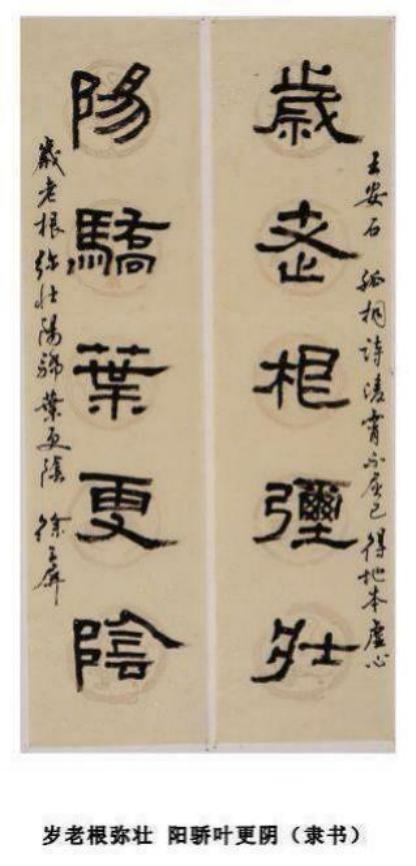 王安石 孤桐詩 凌霄不屈己 得地本虛心
歲老根彌壯
陽驕葉更陰
歲老根弥壮陽骄葉更陰 徐
岁老根弥壮 阳骄叶更阴（隶书）